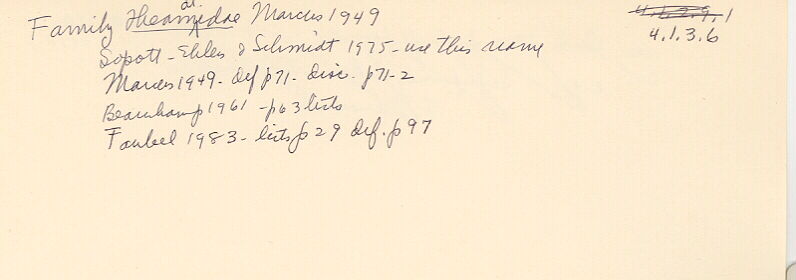 Family Theamatidae Marcus 1949
4.6.2.9.1
4.1.3.6
Sopott-Ehlers & Schmidt 1975 - use this name
Marcus 1949 - def p71 - disc. p71-2
Beauchamp 1961 - p63 lists
Faubel 1983 - lists p29 def. p97